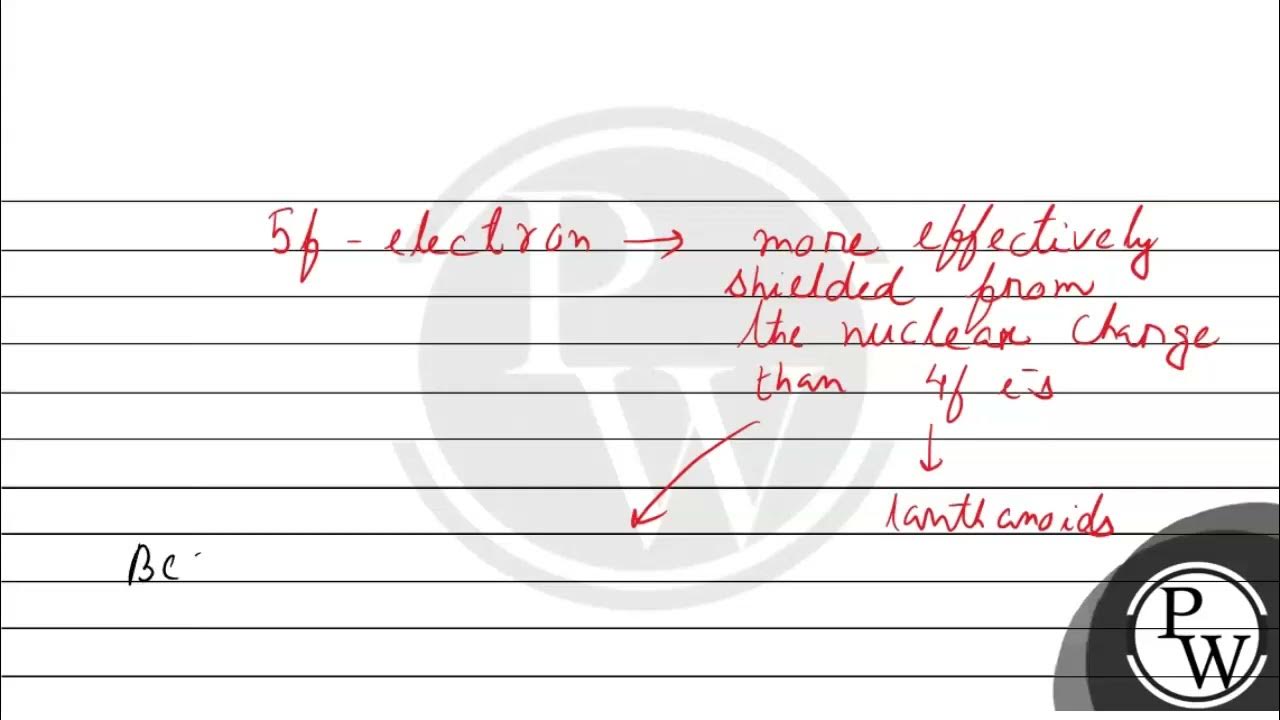 5f - electron → more effectively
shielded from
the nuclear charge
than 4f e-s
↓
lanthanoids
BC
PW
PW